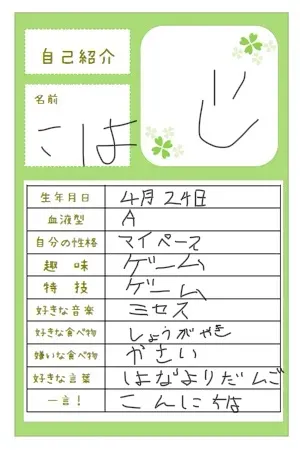 自己紹介
名前
こは
生年月日 4月24日
血液型 A
自分の性格 マイペース
趣味 ゲーム
特技 ゲーム
好きな音楽 ミセス
好きな食べ物 しょうがやき
嫌いな食べ物 やさい
好きな言葉 はなよりだんご
一言！ こんにちは